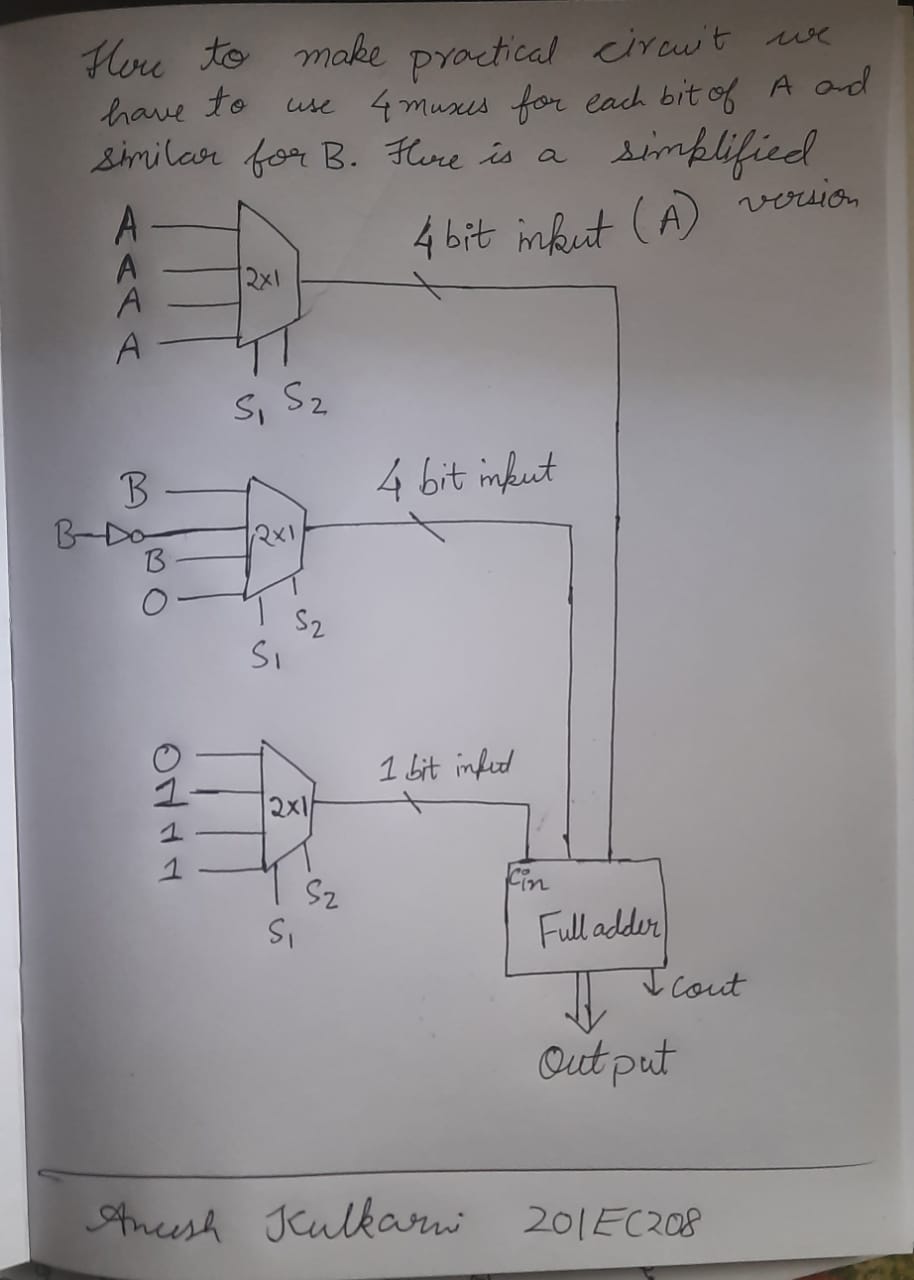 Here to make practical circuit we
have to use 4 muxes for each bit of A and
similar for B. Here is a simplified
version
4 bit input (A)
A
A
A
A
2x1
S1 S2
4 bit input
B
B
B
0
2x1
S1
S2
1 bit input
0
1
1
1
2x1
S1
S2
Cin
Full adder
Cout
Output
Anush Kulkarni 201EC208